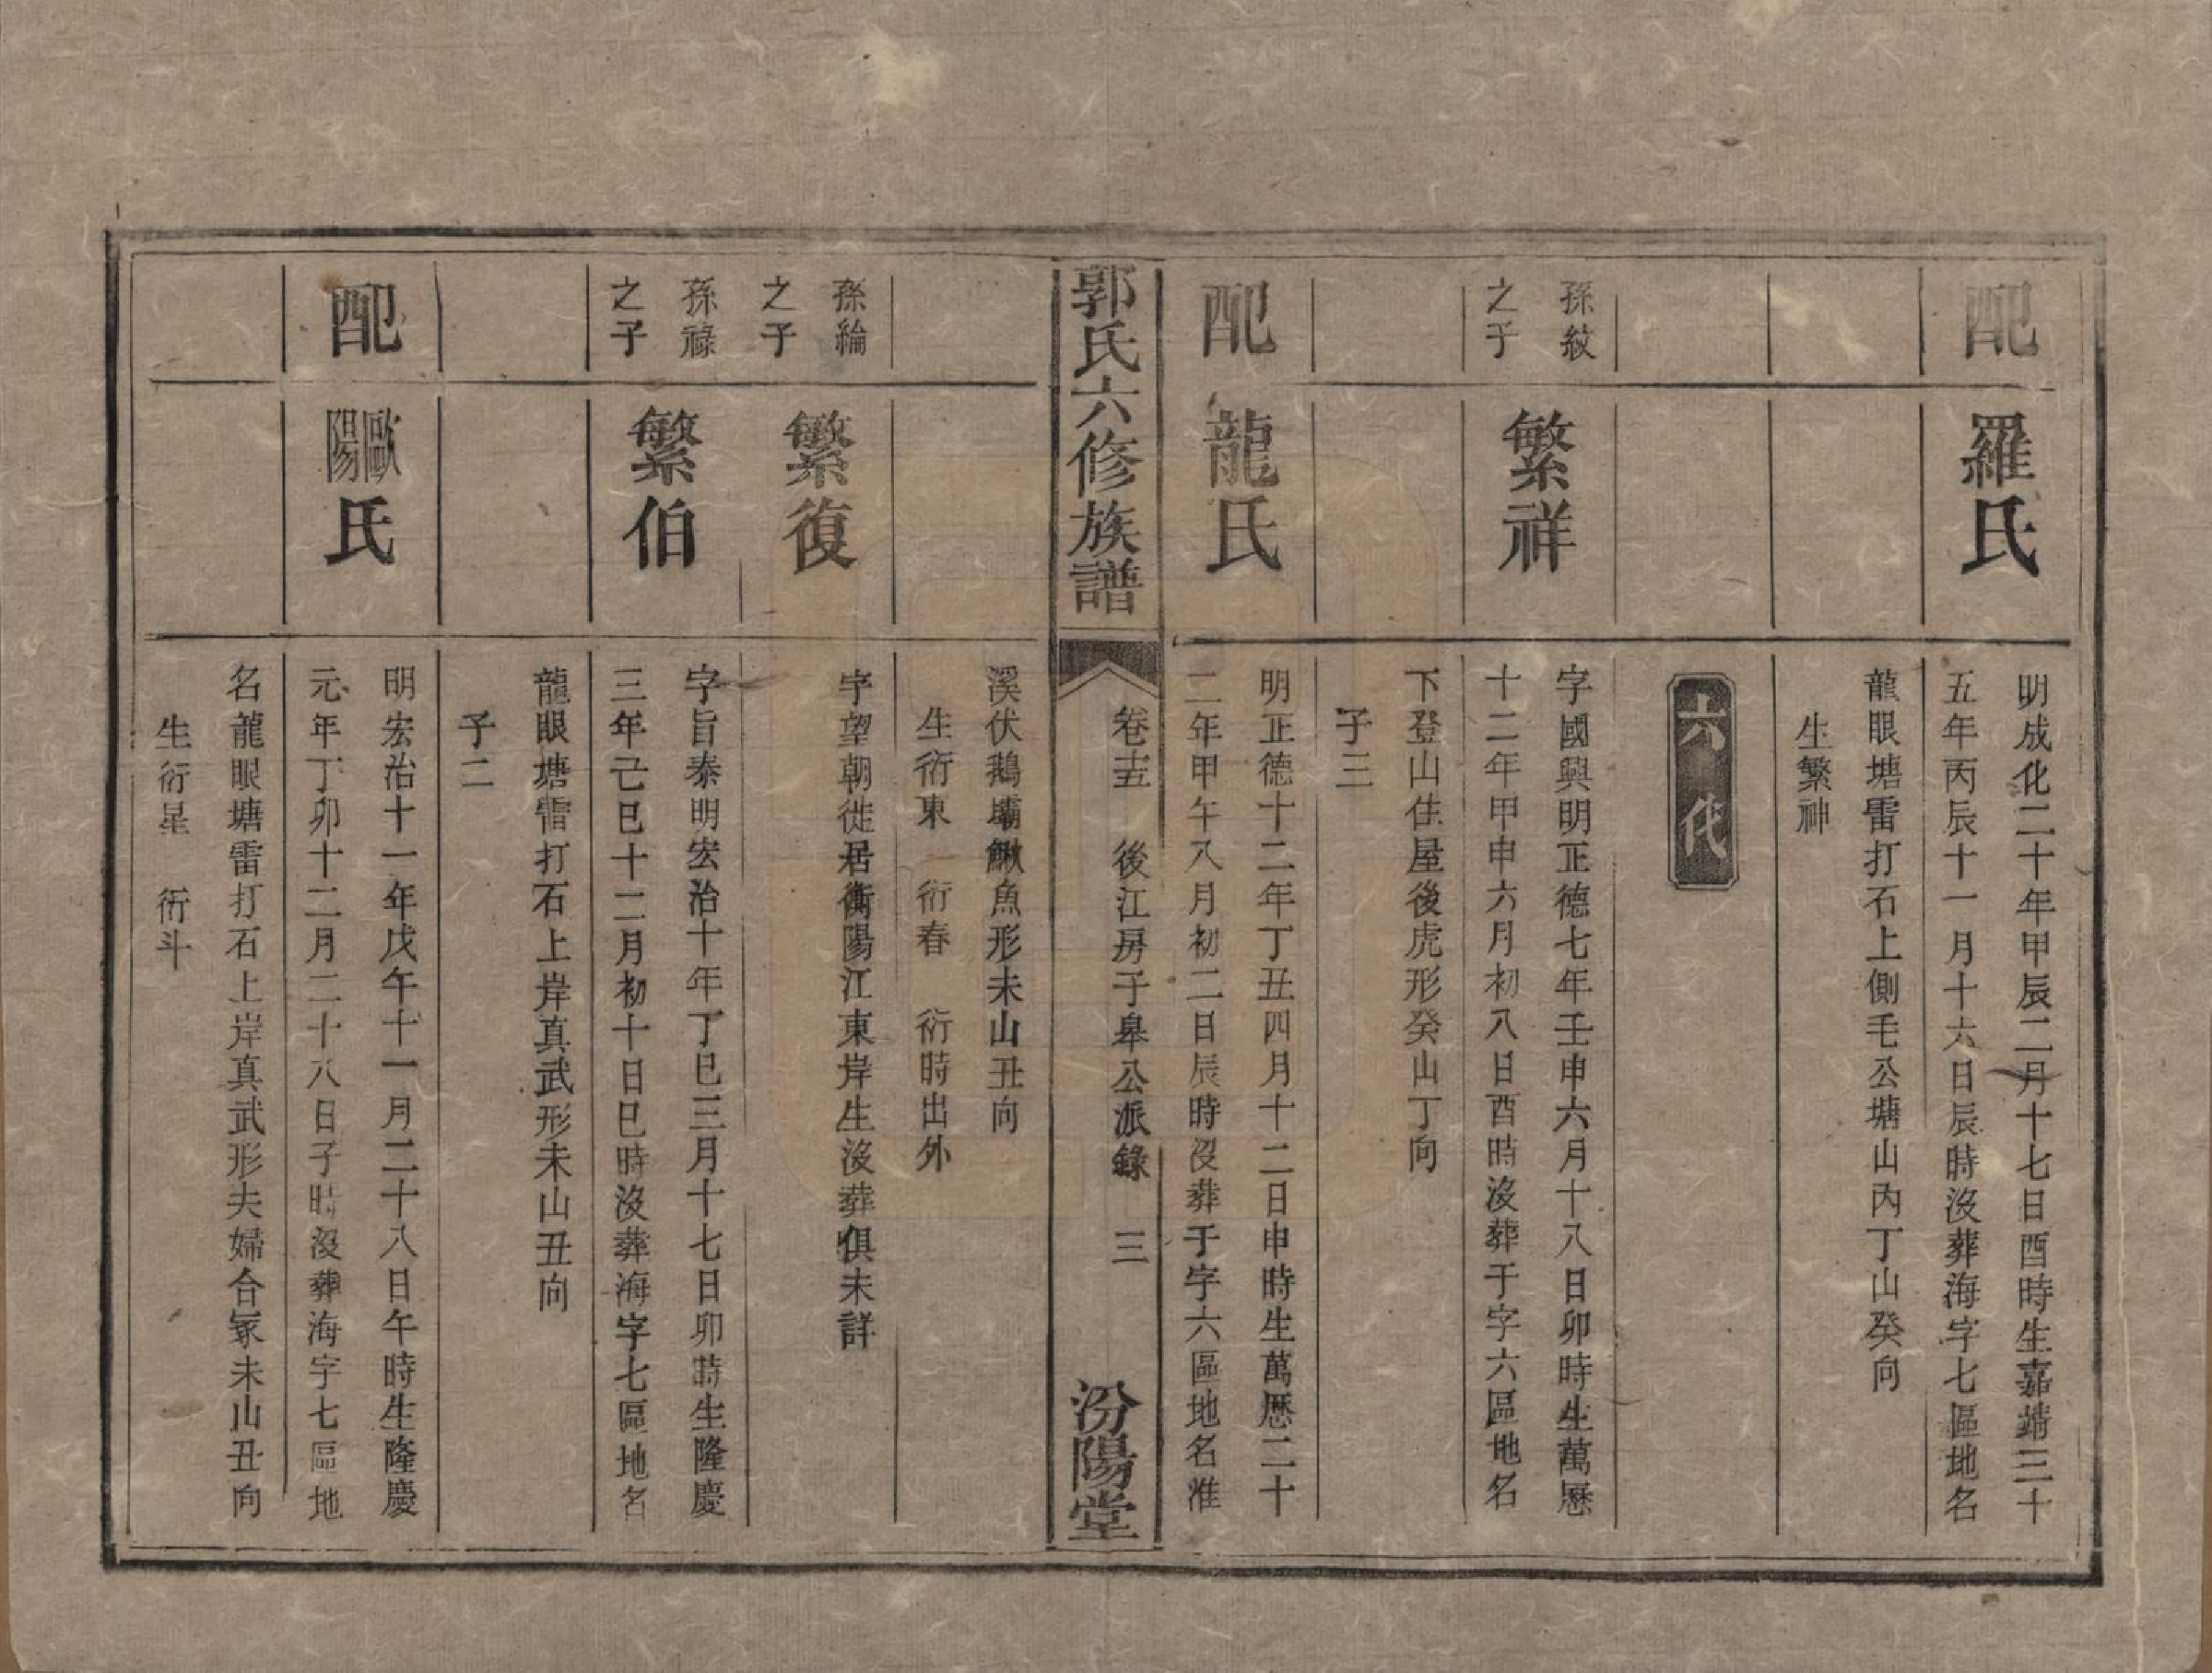 配
羅氏
明成化二十年甲辰二月十七日酉時生嘉靖三十
五年丙辰十一月十六日辰時沒葬海字七區地名
龍眼塘雷打石上側毛公塘山內丁山癸向
生繁神
六代
孫紋
之子
繁祥
字國興明正德七年壬申六月十八日卯時生萬歷
十二年甲申六月初八日酉時沒葬于字六區地名
下登山住屋後虎形癸山丁向
子三
配
龍氏
明正德十二年丁丑四月十二日申時生萬歷二十
二年甲午八月初二日辰時沒葬于字六區地名淮
郭氏六修族譜
卷十五　後江房子皋公派錄　三
汾陽堂
溪伏鵝壩鰍魚形未山丑向
生衍東　衍春　衍時出外
孫綸
之子
繁復
字望朝徙居衡陽江東岸生沒葬俱未詳
孫祿
之子
繁伯
字旨泰明宏治十年丁巳三月十七日卯時生隆慶
三年己巳十二月初十日巳時沒葬海字七區地名
龍眼塘雷打石上岸真武形未山丑向
子二
配
歐陽氏
明宏治十一年戊午十一月二十八日午時生隆慶
元年丁卯十二月二十八日子時沒葬海字七區地
名龍眼塘雷打石上岸真武形夫婦合冢未山丑向
生衍星　衍斗